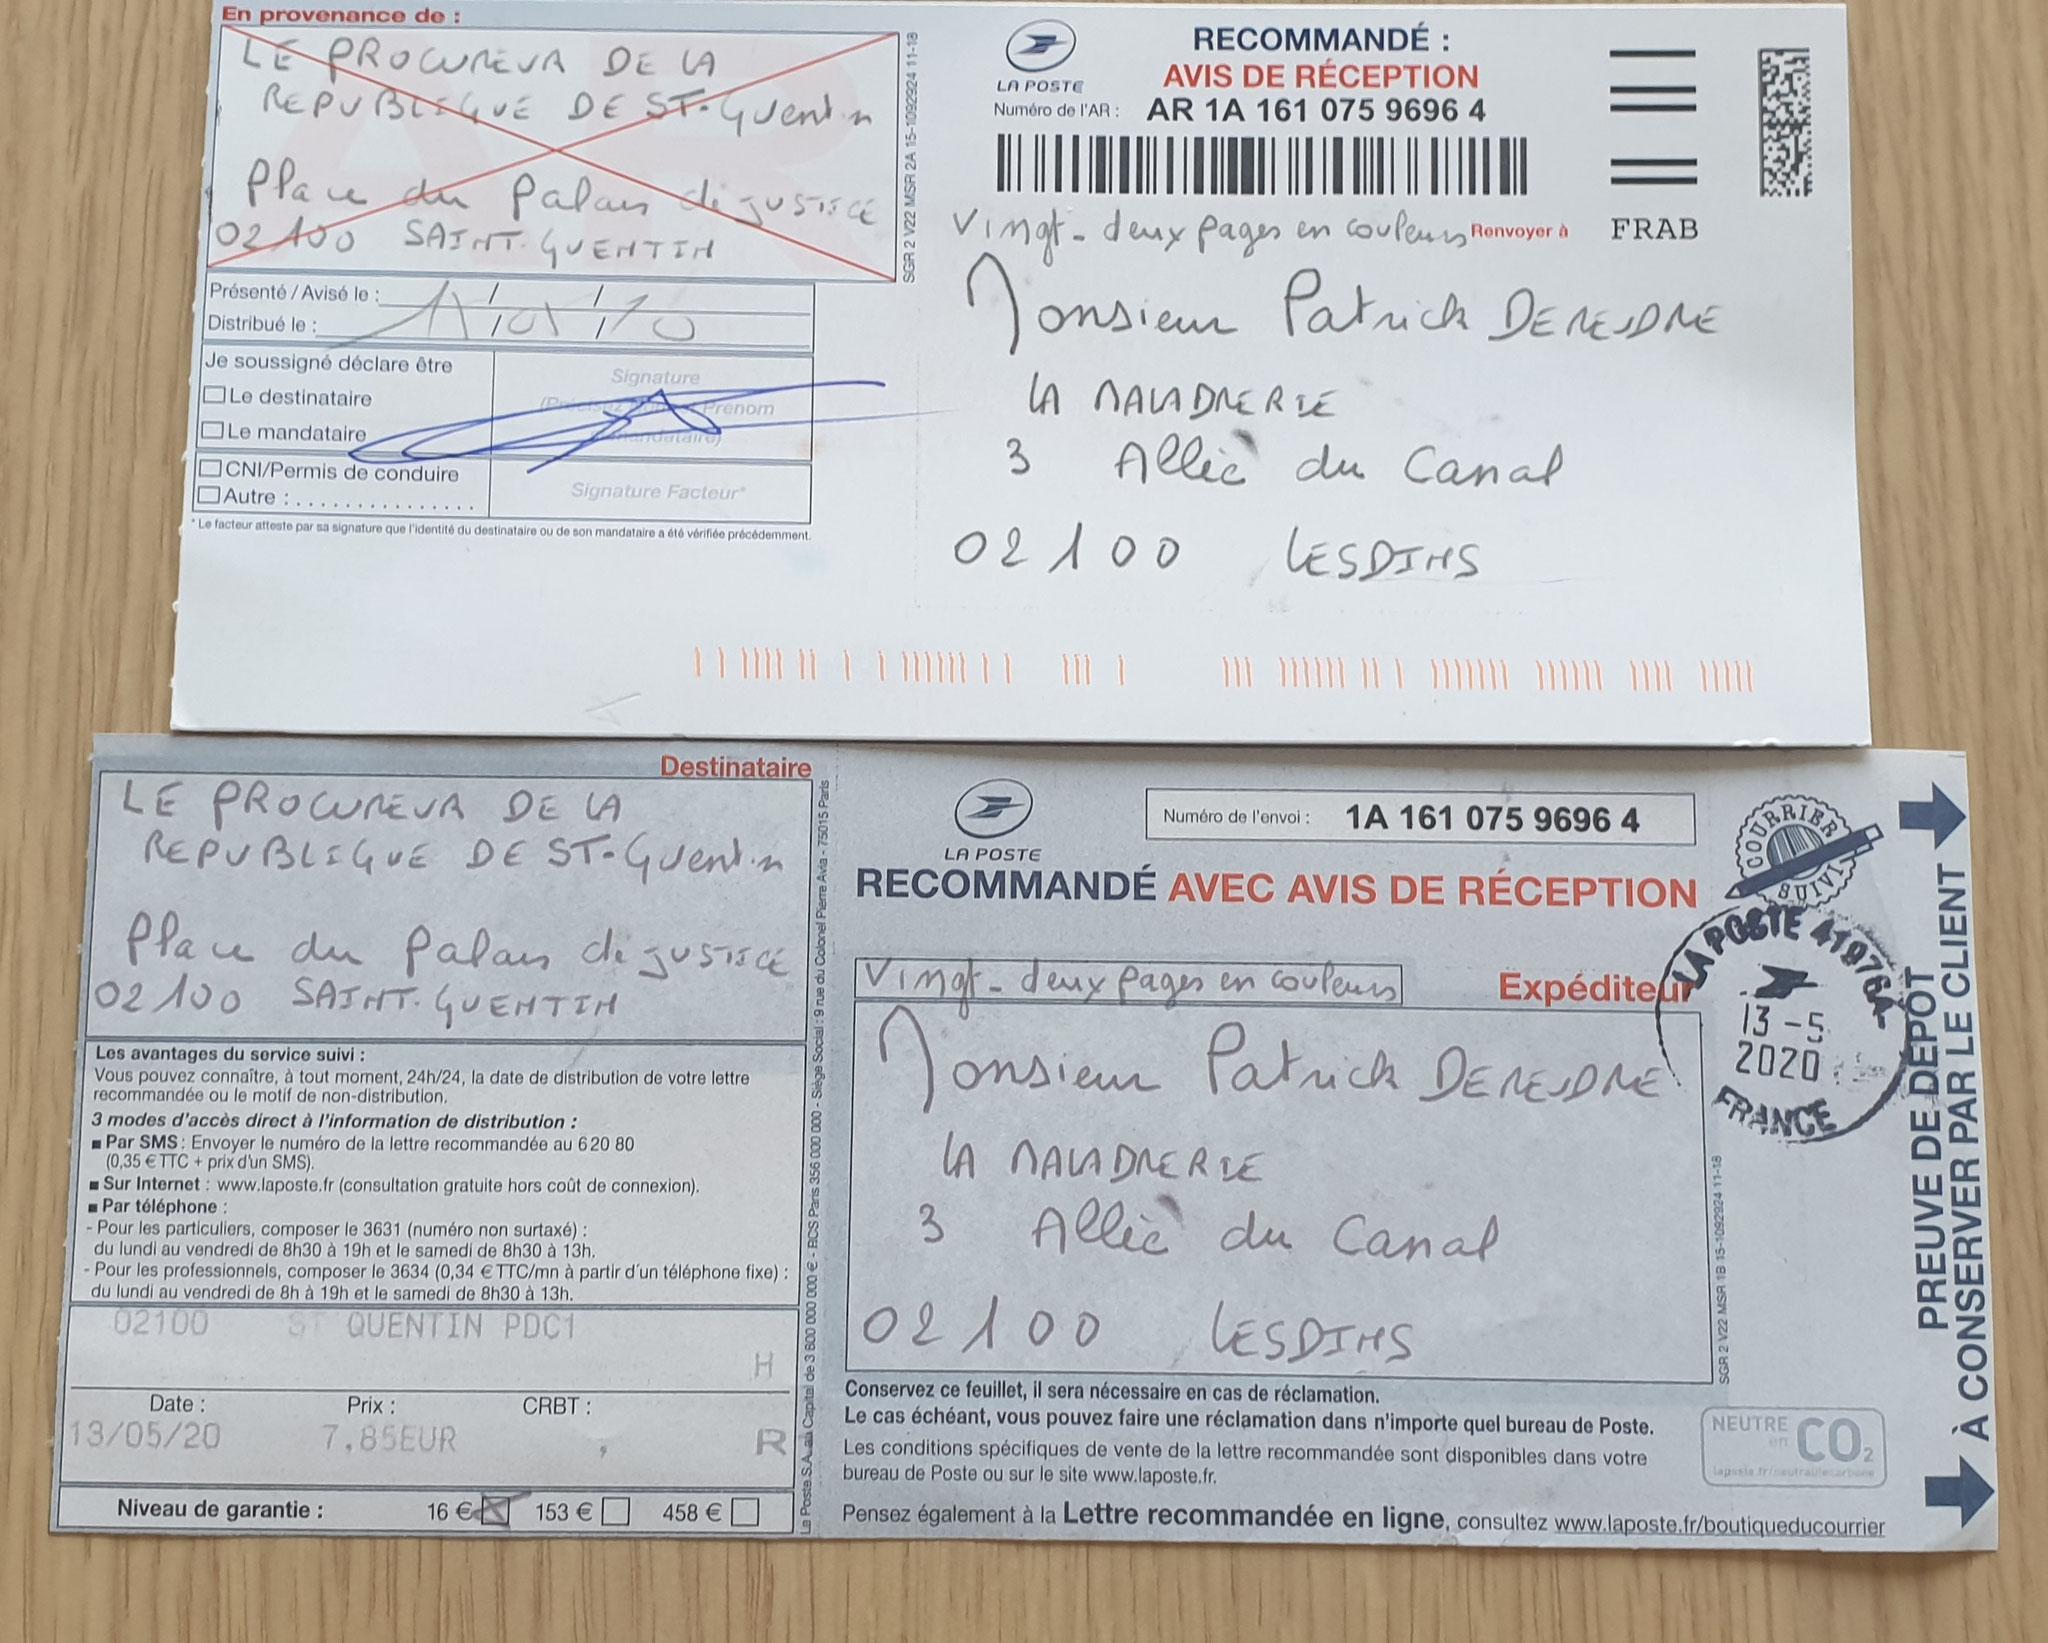 En provenance de :
LE PROCUREUR DE LA
REPUBLIQUE DE ST-Quentin
Place du Palais de JUSTICE
02100 SAINT-QUENTIN
SGR 2 V22 MSR 2A 15-1092924 11-18
Présenté / Avisé le : / /
Distribué le : / /
Je soussigné déclare être
Le destinataire
Le mandataire
CNI/Permis de conduire
Autre : . . . . . . . . . . . . . . .
Signature
Prénom
mandataire)
Signature Facteur*
* Le facteur atteste par sa signature que l'identité du destinataire ou de son mandataire a été vérifiée précédemment.
LA POSTE
RECOMMANDÉ :
AVIS DE RÉCEPTION
Numéro de l'AR : AR 1A 161 075 9696 4
Vingt-deux pages en couleurs Renvoyer à FRAB
Monsieur Patrick DEREUDRE
LA MALADRERIE
3 Allée du Canal
02100 LESDINS
Destinataire
LE PROCUREUR DE LA
REPUBLIQUE DE ST-Quentin
Place du Palais de JUSTICE
02100 SAINT-QUENTIN
Les avantages du service suivi :
Vous pouvez connaître, à tout moment, 24h/24, la date de distribution de votre lettre
recommandée ou le motif de non-distribution.
3 modes d'accès direct à l'information de distribution :
Par SMS : Envoyer le numéro de la lettre recommandée au 6 20 80
(0,35 € TTC + prix d'un SMS).
Sur Internet : www.laposte.fr (consultation gratuite hors coût de connexion).
Par téléphone :
- Pour les particuliers, composer le 3631 (numéro non surtaxé) :
du lundi au vendredi de 8h30 à 19h et le samedi de 8h30 à 13h.
- Pour les professionnels, composer le 3634 (0,34 € TTC/mn à partir d'un téléphone fixe) :
du lundi au vendredi de 8h à 19h et le samedi de 8h30 à 13h.
02100 ST QUENTIN PDC1
H
Date : Prix : CRBT :
13/05/20 7,85EUR , R
Niveau de garantie : 16 € 153 € 458 €
La Poste S.A. au Capital de 3 800 000 000 € - RCS Paris 356 000 000 - Siège Social : 9 rue du Colonel Pierre Avia - 75015 Paris
LA POSTE
Numéro de l'envoi : 1A 161 075 9696 4
RECOMMANDÉ AVEC AVIS DE RÉCEPTION
COURRIER SUIVI
Vingt-deux pages en couleurs
Expéditeur
Monsieur Patrick DEREUDRE
LA MALADRERIE
3 Allée du Canal
02100 LESDINS
LA POSTE 41976A
13-5
2020
FRANCE
SGR 2 V22 MSR 1B 15-1092924 11-18
Conservez ce feuillet, il sera nécessaire en cas de réclamation.
Le cas échéant, vous pouvez faire une réclamation dans n'importe quel bureau de Poste.
Les conditions spécifiques de vente de la lettre recommandée sont disponibles dans votre
bureau de Poste ou sur le site www.laposte.fr.
Pensez également à la Lettre recommandée en ligne, consultez www.laposte.fr/boutiqueducourrier
NEUTRE
en CO2
laposte.fr/neutralitecarbone
PREUVE DE DÉPÔT
À CONSERVER PAR LE CLIENT